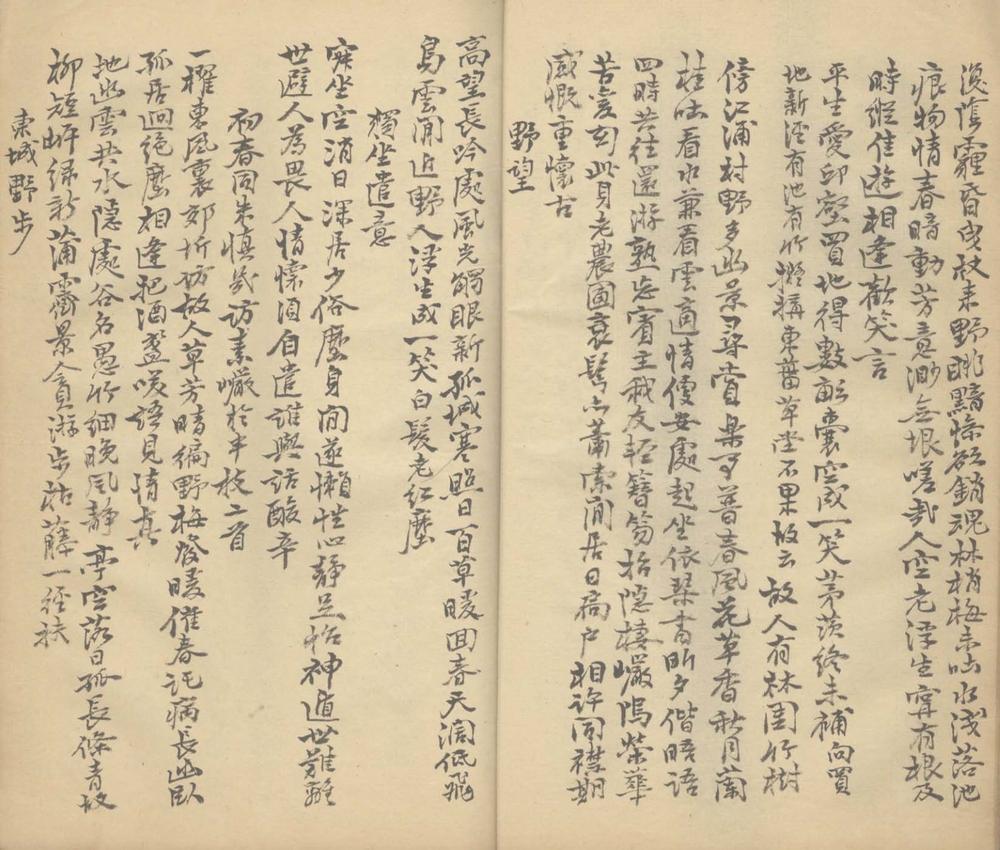 漫陰霾昏曳杖来野眺黯慘欲銷魂林梢梅未吐水浅落池
痕物情春暗動芳意渺無垠嗟哉人空老浮生寧有根及
時縱佳遊相逢歡笑言
平生愛邱壑買地得數畝囊空成一笑茅茨終未補向買
地新淦有池有竹擬構東菑草堂不果故云故人有林園竹樹
傍江浦村野多幽景尋賞果可普春風花草香秋月蘭
桂吐看水兼看雲適情便安處起坐依琴書昕夕偕晤語
四時共往還游熟忘賓主我友輕簪笏拾隱棲巖隖榮華
苦变刻此貝老農圃哀髩亦蕭索閒居日扃户相許同襟期
感慨重懷古
野望
高望長吟處風光觸眼新孤城寒照日百草暖回春天濶低飛
鳥雲閒近野人浮生成一笑白髮老紅塵
獨坐遣意
寐坐空消日深居少俗塵身閒遂懶性心静足怡神遁世難離
世避人为畏人情懷須自遣誰與話酸辛
初春同朱慎哉访素巖於半枝二首
一櫂東風裏郊坼访故人草芳晴徧野梅發暖催春託病長幽卧
孤居迥绝塵相逢把酒盞咲语見情真
地幽雲共水隱處谷名愚竹细晚風静亭空落日孤長條青故
柳短岸绿新蒲霽景貪游步枯藤一径扶
東城野步